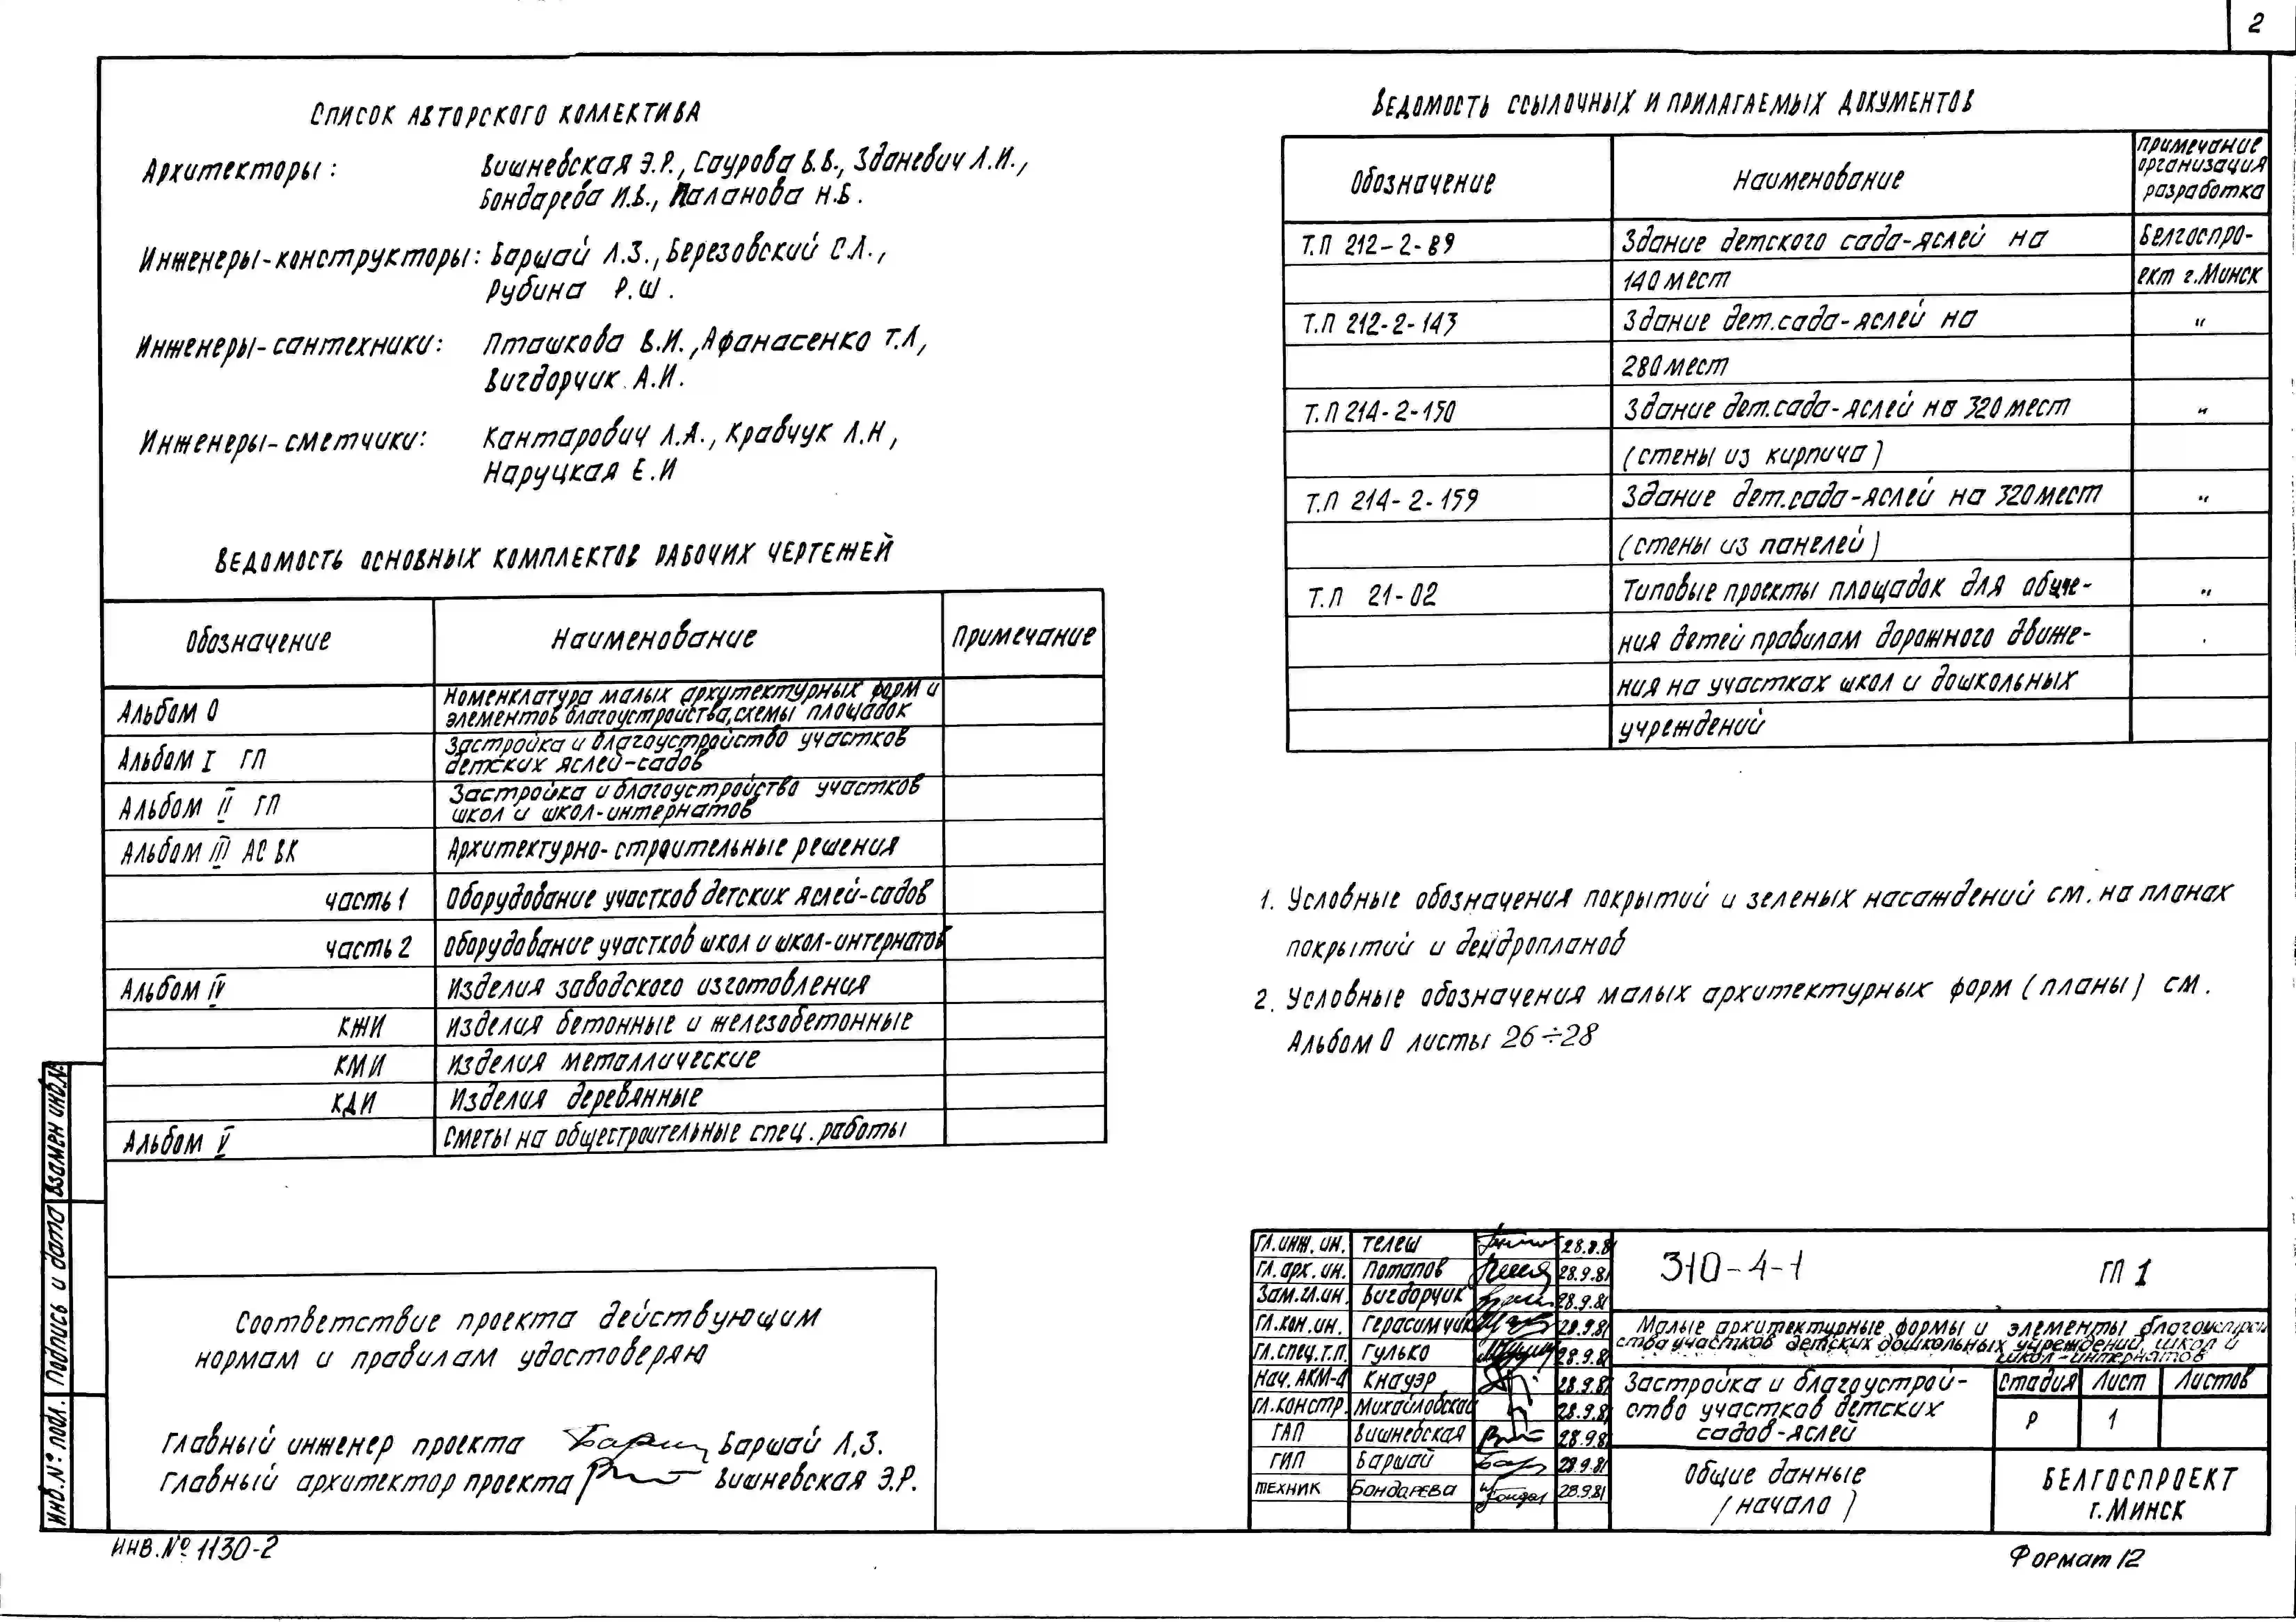 2
Список авторского коллектива
Архитекторы: Вишневская Э.Р., Саурова В.В., Зданевич Л.И.,
Бондарева И.В., Паланова Н.Б.
Инженеры-конструкторы: Баршай Л.З., Березовский С.Л.,
Рубина Р.Ш.
Инженеры-сантехники: Пташкова В.И., Афанасенко Т.Л,
Вигдорчик А.И.
Инженеры-сметчики: Кантарович Л.А., Кравчук Л.Н,
Наруцкая Е.И
Ведомость основных комплектов рабочих чертежей
Обозначение Наименование Примечание
Альбом 0 Номенклатура малых архитектурных форм и
элементов благоустройства, схемы площадок
Альбом I ГП Застройка и благоустройство участков
детских яслей-садов
Альбом II ГП Застройка и благоустройство участков
школ и школ-интернатов
Альбом III АС ВК Архитектурно-строительные решения
часть 1 Оборудование участков детских яслей-садов
часть 2 Оборудование участков школ и школ-интернатов
Альбом IV Изделия заводского изготовления
КЖИ Изделия бетонные и железобетонные
КМИ Изделия металлические
КДИ Изделия деревянные
Альбом V Сметы на общестроительные спец. работы
Соответствие проекта действующим
нормам и правилам удостоверяю
Главный инженер проекта Баршай Л.З.
Главный архитектор проекта Вишневская Э.Р.
Взамен инв.№
Подпись и дата
Инв.№ подл.
Инв.№ 1130-2
Ведомость ссылочных и прилагаемых документов
Обозначение Наименование примечание
организация
разработка
Т.П 212-2-89 Здание детского сада-яслей на Белгоспро-
140 мест ект г.Минск
Т.П 212-2-143 Здание дет.сада-яслей на "
280 мест
Т.П 214-2-150 Здание дет.сада-яслей на 320 мест "
(стены из кирпича)
Т.П 214-2-159 Здание дет.сада-яслей на 320 мест "
(стены из панелей)
Т.П 21-02 Типовые проекты площадок для обуче- "
ния детей правилам дорожного движе-
ния на участках школ и дошкольных
учреждений
1. Условные обозначения покрытий и зеленых насаждений см. на планах
покрытий и дендропланов
2. Условные обозначения малых архитектурных форм (планы) см.
Альбом 0 листы 26÷28
Гл.инж.ин. Телеш 28.9.81
Гл.арх.ин. Потапов 28.9.81
Зам.гл.ин. Вигдорчик 28.9.81
Гл.кон.ин. Герасимчик 28.9.81
Гл.спец.т.п. Гулько 28.9.81
Нач.АКМ-4 Кнауэр 28.9.81
Гл.констр. Михайловская 28.9.81
ГАП Вишневская 28.9.81
ГИП Баршай 28.9.81
техник Бондарева 28.9.81
310-4-1 ГП 1
Малые архитектурные формы и элементы благоустрой
ства участков детских дошкольных учреждений, школ и
школ-интернатов
Застройка и благоустрой-
ство участков детских
садов-яслей
Стадия Лист Листов
Р 1
Общие данные
(начало)
БЕЛГОСПРОЕКТ
г. Минск
Формат 12